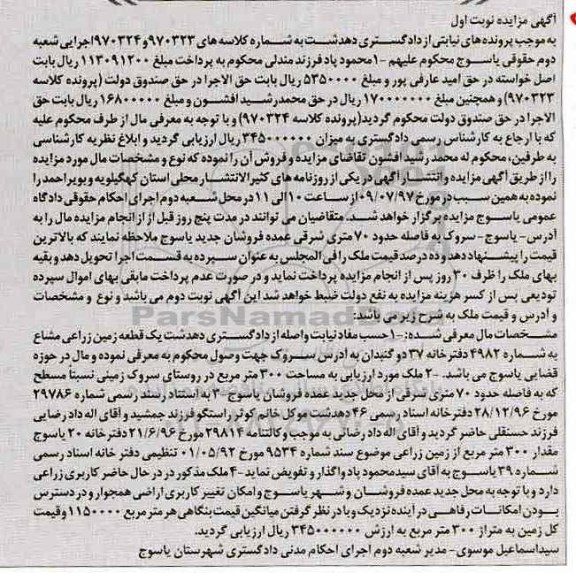 آگهی مزایده نوبت اول
به موجب پرونده های نیابتی از دادگستری دهدشت به شماره کلاسه های ۹۷۰۳۲۳ و ۹۷۰۳۲۴ اجرایی شعبه
دوم حقوقی یاسوج محکوم علیهم -۱ محمود پاد فرزند مندلی محکوم به پرداخت مبلغ ۱۱۳۰۹۱۲۰۰ ریال بابت
اصل خواسته در حق امید عارفی پور و مبلغ ۵۳۵۰۰۰۰ ریال بابت حق الاجرا در حق صندوق دولت (پرونده کلاسه
۹۷۰۳۲۳) و همچنین مبلغ ۱۷۰۰۰۰۰۰۰ ریال در حق محمدرشید افشون و مبلغ ۱۶۸۰۰۰۰۰ ریال بابت حق
الاجرا در حق صندوق دولت محکوم گردید (پرونده کلاسه ۹۷۰۳۲۴) و با توجه به معرفی مال از طرف محکوم علیه
که با ارجاع به کارشناس رسمی دادگستری به میزان ۳۴۵۰۰۰۰۰۰ ریال ارزیابی گردید و ابلاغ نظریه کارشناسی
به طرفین، محکوم له محمد رشید افشون تقاضای مزایده و فروش آن را نموده که نوع و مشخصات مال مورد مزایده
را از طریق آگهی مزایده و انتشار آگهی در یکی از روزنامه های کثیرالانتشار محلی استان کهگیلویه و بویراحمد را
نموده به همین سبب در مورخ ۰۹/۰۷/۹۷ از ساعت ۱۰ الی ۱۱ در محل شعبه دوم اجرای احکام حقوقی دادگاه
عمومی یاسوج مزایده برگزار خواهد شد. متقاضیان می توانند در مدت پنج روز قبل از از انجام مزایده مال را به
آدرس- یاسوج- سروک به فاصله حدود ۷۰ متری شرقی عمده فروشان جدید یاسوج ملاحظه نمایند که بالاترین
قیمت را پیشنهاد دهد و ده درصد قیمت ملک را فی المجلس به عنوان سپرده به قسمت اجرا تحویل دهد و بقیه
بهای ملک را ظرف ۳۰ روز پس از انجام مزایده پرداخت نماید و در صورت عدم پرداخت مابقی بهای اموال سپرده
تودیعی پس از کسر هزینه مزایده به نفع دولت ضبط خواهد شد این آگهی نوبت دوم می باشد و نوع و مشخصات
و آدرس و قیمت ملک به شرح زیر می باشد:
مشخصات مال معرفی شده: -۱ حسب مفاد نیابت واصله از دادگستری دهدشت یک قطعه زمین زراعی مشاع
به شماره ۴۹۸۲ دفترخانه ۳۷ دو گنبدان به آدرس سروک جهت وصول محکوم به معرفی نموده و مال در حوزه
قضایی یاسوج می باشد. -۲ ملک مورد ارزیابی به مساحت ۳۰۰ متر مربع در روستای سروک زمینی نسبتاً مسطح
که به فاصله حدود ۷۰ متری شرقی از محل جدید عمده فروشان یاسوج -۳ به استناد سند رسمی شماره ۲۹۷۸۶
مورخ ۲۸/۱۲/۹۶ دفترخانه اسناد رسمی ۴۶ دهدشت موکل خانم کوثر راستگو فرزند جمشید و آقای اله داد رضایی
فرزند حسنقلی حاضر گردید و آقای اله داد رضائی به موجب وکالتنامه ۲۹۸۱۴ مورخ ۲۱/۶/۹۶ دفترخانه ۲۰ یاسوج
مقدار ۳۰۰ متر مربع از زمین زراعی موضوع سند شماره ۹۵۳۴ مورخ ۰۱/۰۵/۹۲ تنظیمی دفتر خانه اسناد رسمی
شماره ۳۹ یاسوج به آقای سیدمحمود پاد واگذار و تفویض نماید -۴ ملک مذکور در در حال حاضر کاربری زراعی
دارد و با توجه به محل جدید عمده فروشان و شهر یاسوج و امکان تغییر کاربری اراضی همجوار و در دسترس
بودن امکانات رفاهی در آینده نزدیک و با در نظر گرفتن میانگین قیمت بنگاهی هر متر مربع ۱۱۵۰۰۰۰ و قیمت
کل زمین به متراژ ۳۰۰ متر مربع به ارزش ۳۴۵۰۰۰۰۰۰ ریال ارزیابی گردید.
سیداسماعیل موسوی- مدیر شعبه دوم اجرای احکام مدنی دادگستری شهرستان یاسوج
ParsNamadData